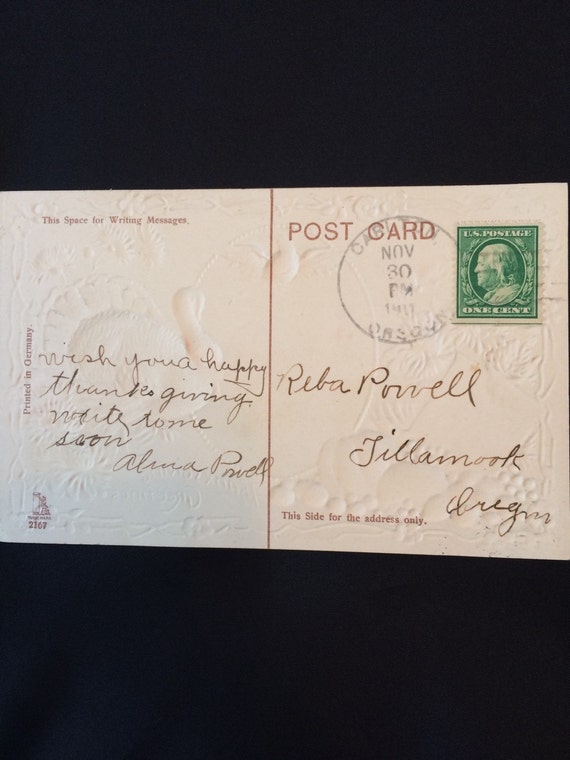 This Space for Writing Messages.
POST CARD
NOV
30
PM
1911
OREGON
U.S. POSTAGE
ONE CENT
Printed in Germany.
wish you a happy
thanksgiving
write to me
soon
Alma Powell
Reba Powell
Tillamook
Oregon
This Side for the address only.
2167